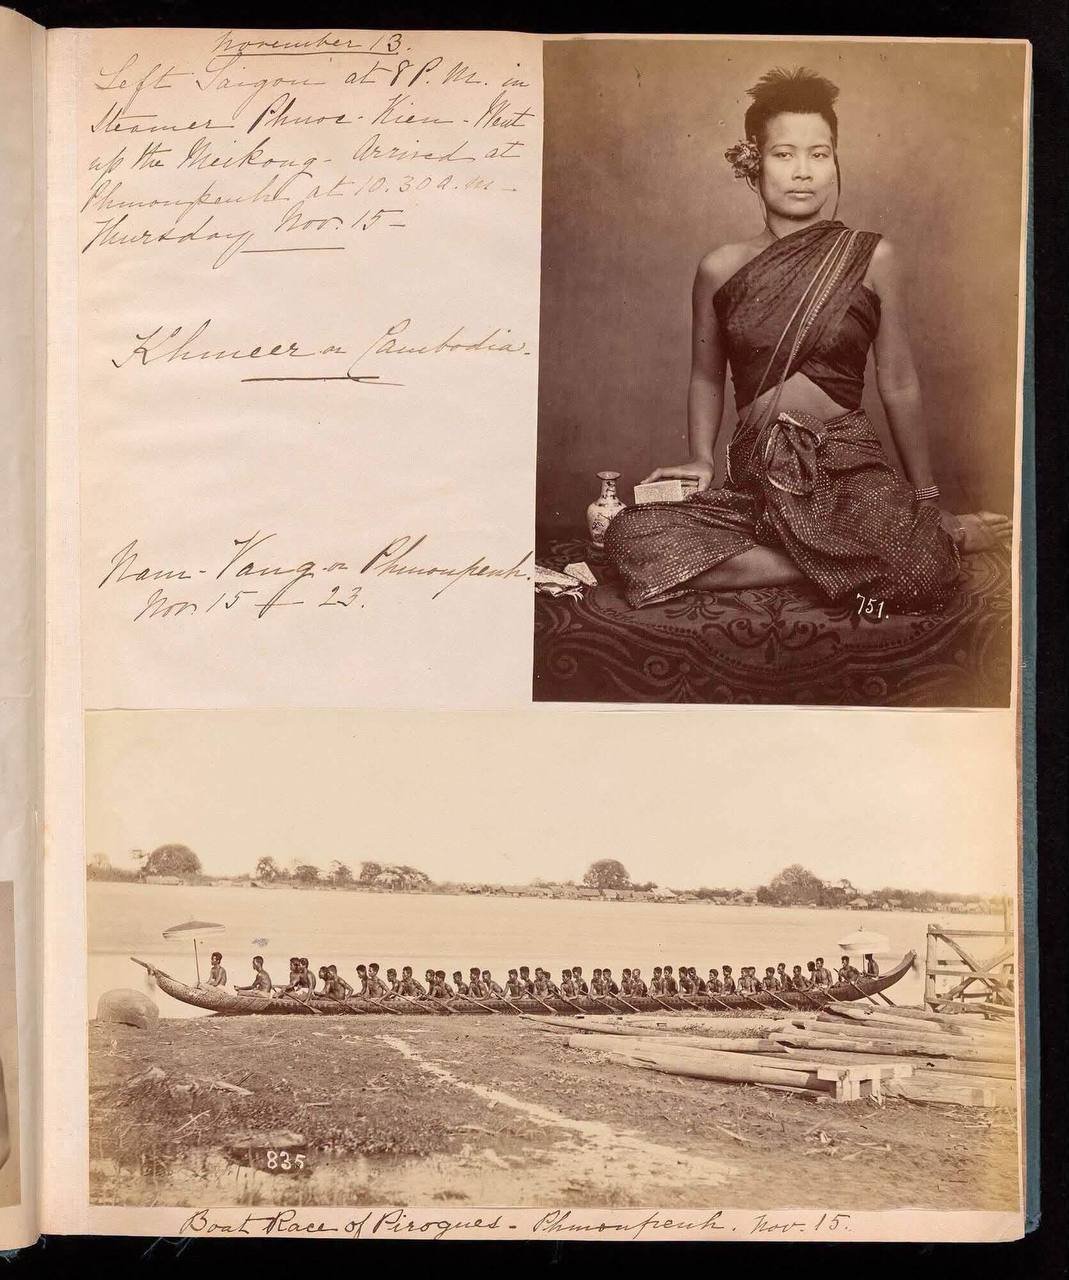 November 13.
Left Saigon at 8 P. M. in
Steamer Phuoc-Kien - Went
up the Meikong - Arrived at
Phnoupenh at 10.30 a.m -
Thursday Nov. 15 -
Khmeer or Cambodia.
Nam-Vang or Phnoupenh.
Nov. 15 - 23.
751.
835
Boat Race of Pirogues - Phnoupenh. Nov. 15.